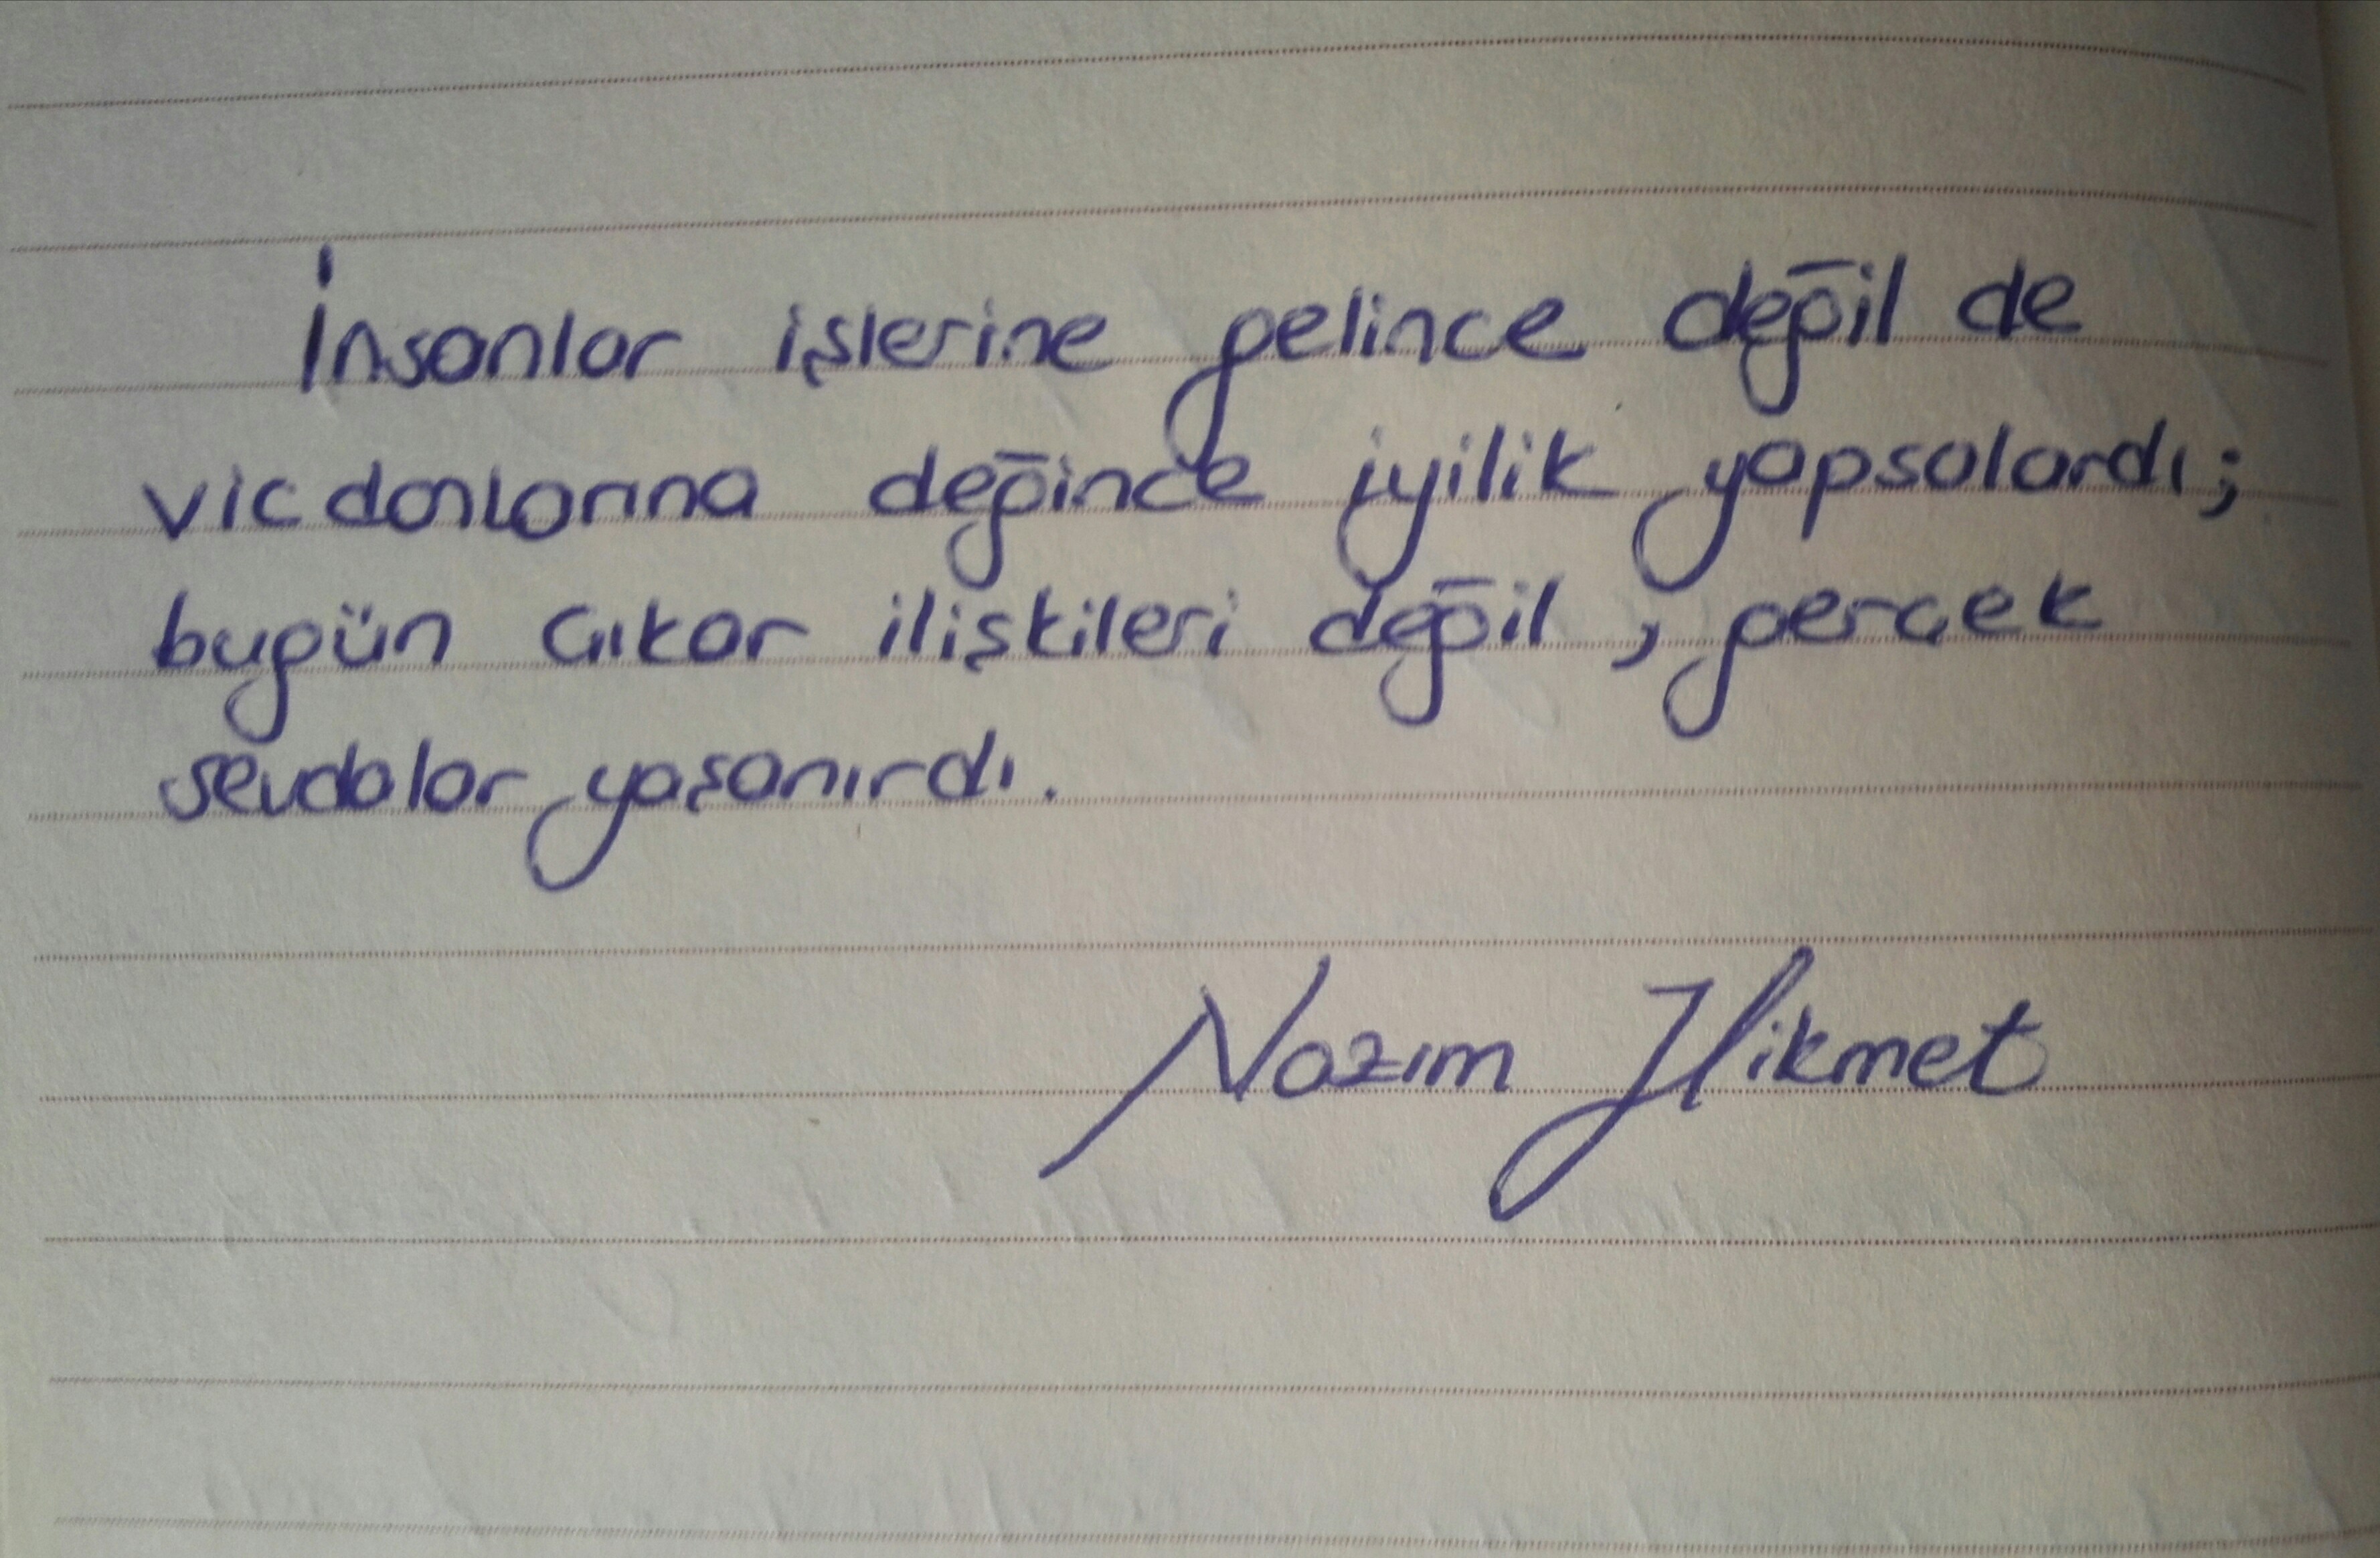 İnsanlar işlerine gelince değil de
vicdanlarına değince iyilik yapsalardı;
bugün çıkar ilişkileri değil, gerçek
sevdalar yaşanırdı.
Nazım Hikmet